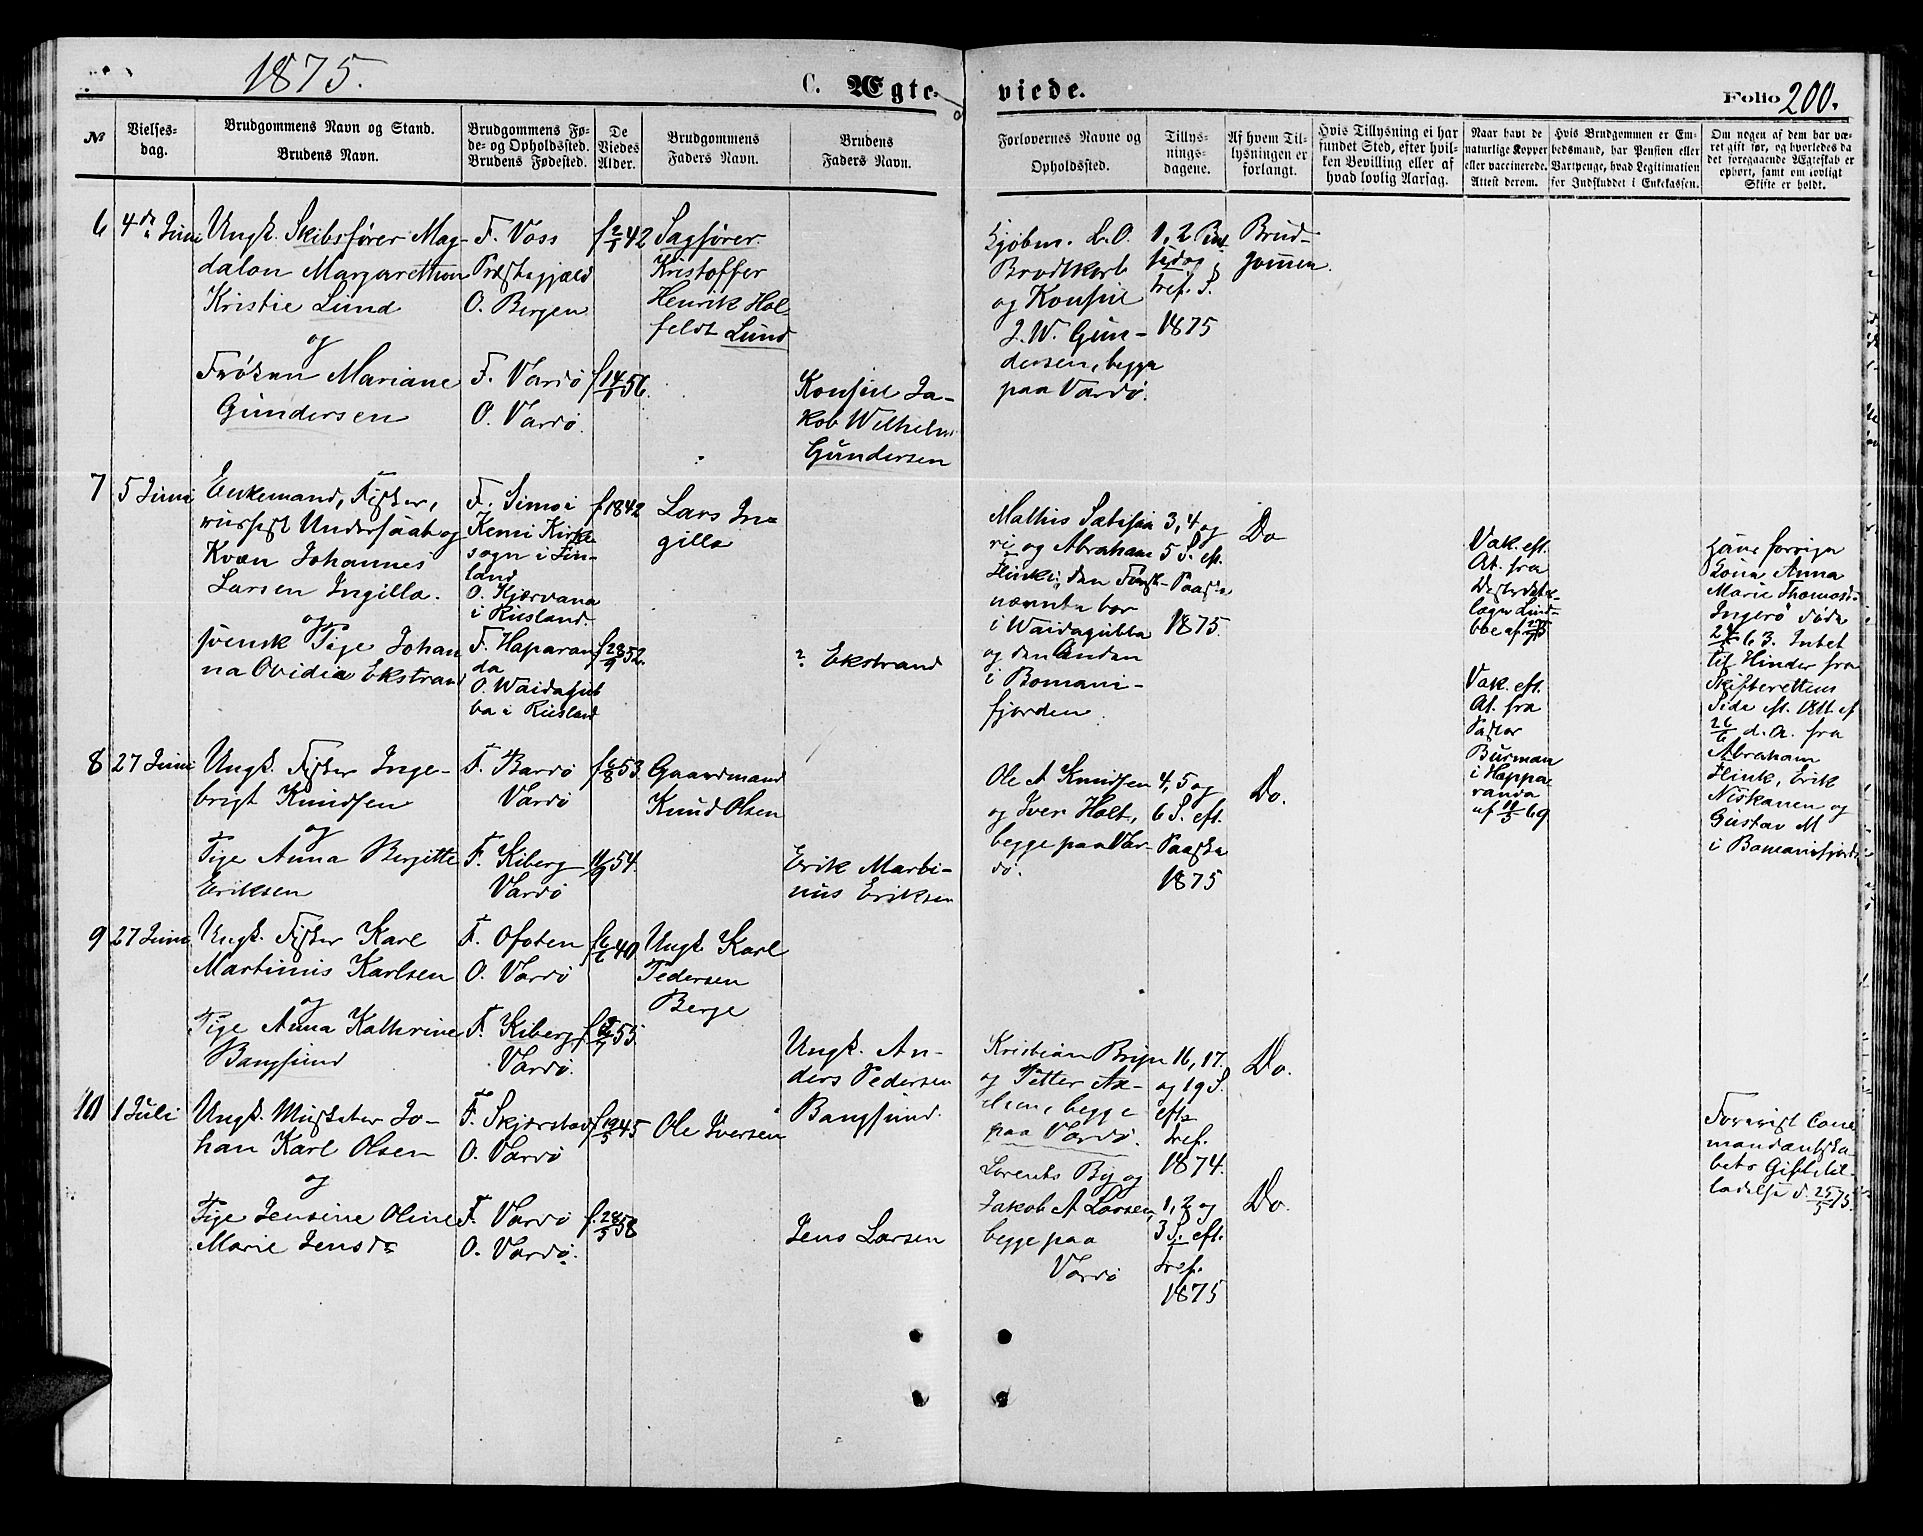 1875.
C. Ægte-
viede.
Folio 200.
No
Vielses-
dag.
Brudgommens Navn og Stand.
Brudens Navn.
Brudgommens Fø-
de- og Opholdssted.
Brudens Fødested.
De
Viedes
Alder.
Brudgommens
Faders Navn.
Brudens
Faders Navn.
Forlovernes Navne og
Opholdssted.
Tillys-
nings-
dagene.
Af hvem Til-
lysningen er
forlangt.
Hvis Tillysning ei har
fundet Sted, efter hvil-
ken Bevilling eller af
hvad lovlig Aarsag.
Naar havt de
naturlige Kopper
eller vaccinerede.
Attest derom.
Hvis Brudgommen er Em-
bedsmand, har Pension eller
Vartpenge, hvad Legitimation
for Indskuddet i Enkekassen.
Om nogen af dem har væ-
ret gift før, og hvorledes da
det foregaaende Ægteskab er
ophørt, samt om lovligt
Skifte er holdt.
6
4de Juni
Ungk. Skibsfører Mag-
dalon Margarethon
Kristie Lund
og
Frøken Mariane
Gundersen
F. Voss
Præstegjæld
O. Bergen
F. Vardø
O. Vardø
f 2/1 42
f 14/1 56.
Sagfører
Kristoffer
Henrik Hol
feldt Lund
Konsul Ja-
kob Wilhelm
Gundersen
Kjøbm. L. O.
Brodtkorb
og Konsul
J. W. Gun-
dersen, begge
paa Vardø.
1, 2 Pin
sedag
Tref. S.
1875
Brud-
gommen.
7
5 Juni
Enkemand, Fisker,
russisk Undersaat og
Kvæn Johannes
Larsen Ingilla.
og
svensk Pige Johan
na Ovidia Ekstrand
F. Simo i
Kemi Kirke
sogn i Fin-
land
O. Kjervana
i Rusland.
F. Haparan
da
O. Waidagub
ba i Rusland
f 1842
f 28/9 52.
Lars In-
gilla
? Ekstrand
Mathis
og Abraham
Hink, den Først-
nævnte bor
i Waidagubba
og den Anden
i Bomani-
fjorden
3, 4 og
5 S. eft.
Paaske
1875.
Do
Vak. eft.
At. fra
Distriktsl
læge Lind-
boe af
Vak. eft.
At. fra
Pastor
Burman
i Happa
randa
af 11/5 69
forrige
Kone Anna
Marie Thomasd.
Ingerø døde
63. Intet
til Hinder fra
Skifterettens
Side eft. Att. af
26/6 d. A. fra
Abraham
Hink, Erik
Niskanen og
Gustav M
i Bomanifjord
8
27 Juni
Ungk. Fisker Inge-
brigt Knudsen
og
Pige Anna Bergitte
Eriksen
F. Bardø
Vardø
F. Kiberg
Vardø
f 6/8 53.
54.
Gaardmand
Knud Olsen
Erik Marti-
nus Eriksen
Ole A Knudsen
og Iver Holt,
begge paa Var-
dø.
4, 5 og
6 S. eft.
Paaske
1875
Do.
9
27 Juni
Ungk. Fisker Karl
Martinus Karlsen
og
Pige Anna Kathrine
Bangsund
F. Ofoten
O. Vardø
F. Kiberg
Vardø.
f 6/6 40
55.
Ungk Karl
Pedersen
Berge
Ungk. An-
ders Pedersen
Bangsund.
Kristian Bryn
og Petter Ax-
elsen, begge
paa Vardø.
16, 17.
og 19 S.
eft.
Tref.
1874.
Do.
10
1 Juli
Ungk. Musketer Jo-
han Karl Olsen
og
Pige Jensine Oline
Marie Jensdr
F. Skjerstad
O. Vardø
F. Vardø
O. Vardø.
f 19/5 45
f. 28/5 58
Ole Iversen
Jens Larsen
Lorents By og
Jakob A Larsen,
begge paa
Vardø
1, 2 og
3 S. eft.
Tref.
1875
Do.
Forevist Com
mandantska
bets Giftetil-
ladelse d. 25/5 75.